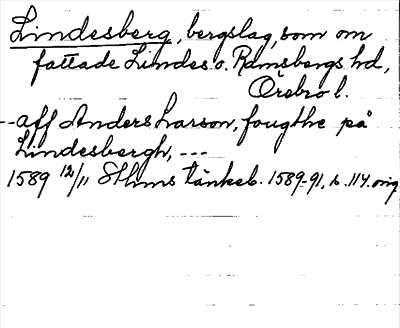 Lindesberg, bergslag, som om
fattade Lindes o. Ramsbergs hd,
Örebro l.
--aff Anders Larson, fougthe på
Lindesbergh, ---
1589 12/11 Sthms tänkeb. 1589-91, s. 114. orig